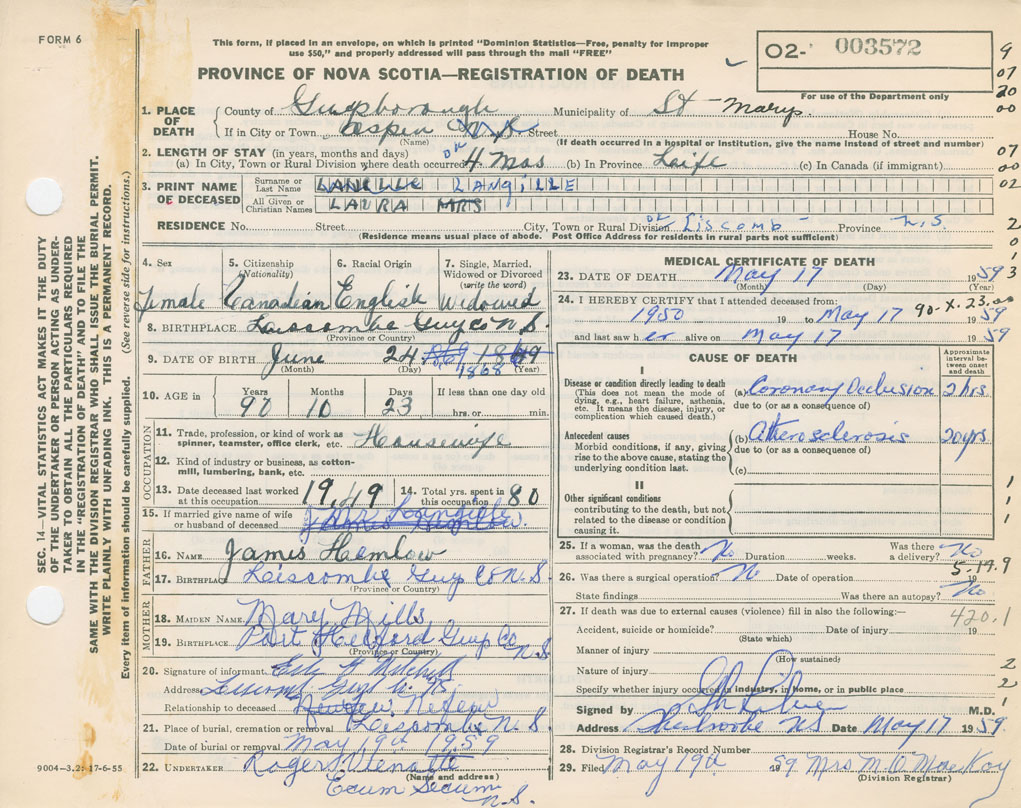 FORM 6
This form, if placed in an envelope, on which is printed "Dominion Statistics—Free, penalty for improper
use $50," and properly addressed will pass through the mail "FREE"
PROVINCE OF NOVA SCOTIA—REGISTRATION OF DEATH
02- 003572
For use of the Department only
9
07
20
00
07
00
02
2
0
1
3
SEC. 14—VITAL STATISTICS ACT MAKES IT THE DUTY
OF THE UNDERTAKER OR PERSON ACTING AS UNDER-
TAKER TO OBTAIN ALL THE PARTICULARS REQUIRED
IN THE "REGISTRATION OF DEATH" AND TO FILE THE
SAME WITH THE DIVISION REGISTRAR WHO SHALL ISSUE THE BURIAL PERMIT.
WRITE PLAINLY WITH UNFADING INK. THIS IS A PERMANENT RECORD.
Every item of information should be carefully supplied. (See reverse side for instructions.)
1. PLACE OF DEATH { County of Guysborough Municipality of St Marys.
If in City or Town Aspen N.S. Street House No.
(Name) (If death occurred in a hospital or Institution, give the name Instead of street and number)
2. LENGTH OF STAY (in years, months and days)
(a) In City, Town or Rural Division where death occurred 4 Mos (b) In Province Life (c) In Canada (if immigrant)
3. PRINT NAME OF DECEASED { Surname or Last Name LANGILLE
All Given or Christian Names LAURA MRS
RESIDENCE No. Street City, Town or Rural Division Liscomb Province N.S.
(Residence means usual place of abode. Post Office Address for residents in rural parts not sufficient)
4. Sex 5. Citizenship (Nationality) 6. Racial Origin 7. Single, Married, Widowed or Divorced (write the word)
Female Canadian English Widowed
8. BIRTHPLACE Liscombe Guy Co N.S.
(Province or Country)
9. DATE OF BIRTH June 24 1869 1868
(Month) (Day) (Year)
10. AGE in { Years Months Days If less than one day old
90 10 23 hrs. or min.
OCCUPATION
11. Trade, profession, or kind of work as spinner, teamster, office clerk, etc. Housewife
12. Kind of industry or business, as cotton-mill, lumbering, bank, etc.
13. Date deceased last worked at this occupation 1949 14. Total yrs. spent in this occupation 80
15. If married give name of wife or husband of deceased James Langille
FATHER
16. NAME James Hemlow
17. BIRTHPLACE Liscombe Guy Co N.S.
(Province or Country)
MOTHER
18. MAIDEN NAME Mary Mills
19. BIRTHPLACE Port Hilford Guy Co N.S.
(Province or Country)
20. Signature of informant
Address Liscomb Guys Co N.S.
Relationship to deceased Nephew
21. Place of burial, cremation or removal Liscombe N.S.
Date of burial or removal May 19th 1959
22. UNDERTAKER Roger
(Name and address)
Ecum Secum
N.S.
9004—3.2: 17-6-55
MEDICAL CERTIFICATE OF DEATH
23. DATE OF DEATH May 17 1959
(Month) (Day) (Year)
24. I HEREBY CERTIFY that I attended deceased from: 90-X-23.00
1950 19 to May 17 1959
and last saw h er alive on May 17 1959
CAUSE OF DEATH Approximate interval between onset and death
I
Disease or condition directly leading to death
(This does not mean the mode of dying, e.g., heart failure, asthenia, etc. It means the disease, injury, or complication which caused death.)
(a) Coronary Occlusion 2 hrs.
due to (or as a consequence of)
Antecedent causes
Morbid conditions, if any, giving rise to the above cause, stating the underlying condition last.
(b) Atherosclerosis 20 yrs
due to (or as a consequence of)
(c)
II
Other significant conditions
contributing to the death, but not related to the disease or condition causing it.
1
1
1
25. If a woman, was the death associated with pregnancy? No Duration weeks. Was there a delivery? No
5-17.9
26. Was there a surgical operation? No Date of operation 19
State findings Was there an autopsy? No
27. If death was due to external causes (violence) fill in also the following:— 420.1
Accident, suicide or homicide? Date of injury 19
(State which)
Manner of injury
(How sustained)
Nature of injury
Specify whether injury occurred in industry, in home, or in public place
2
2
1
Signed by M.D.
Address Sherbrooke NS Date May 17 1959
28. Division Registrar's Record Number
29. Filed May 19th 1959 Mrs M.D. MacKay
(Division Registrar)